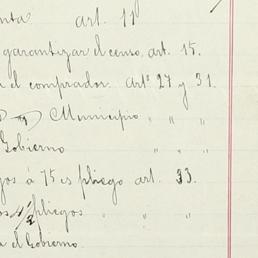 nta art. 11
garantizar el censo, art. 15.
el comprador. Artº 27 y 31.
Municipio " "
Gobierno " "
gos á 75 cs pliego art. 33.
os 4/2 pliegos " "
el Gobierno.